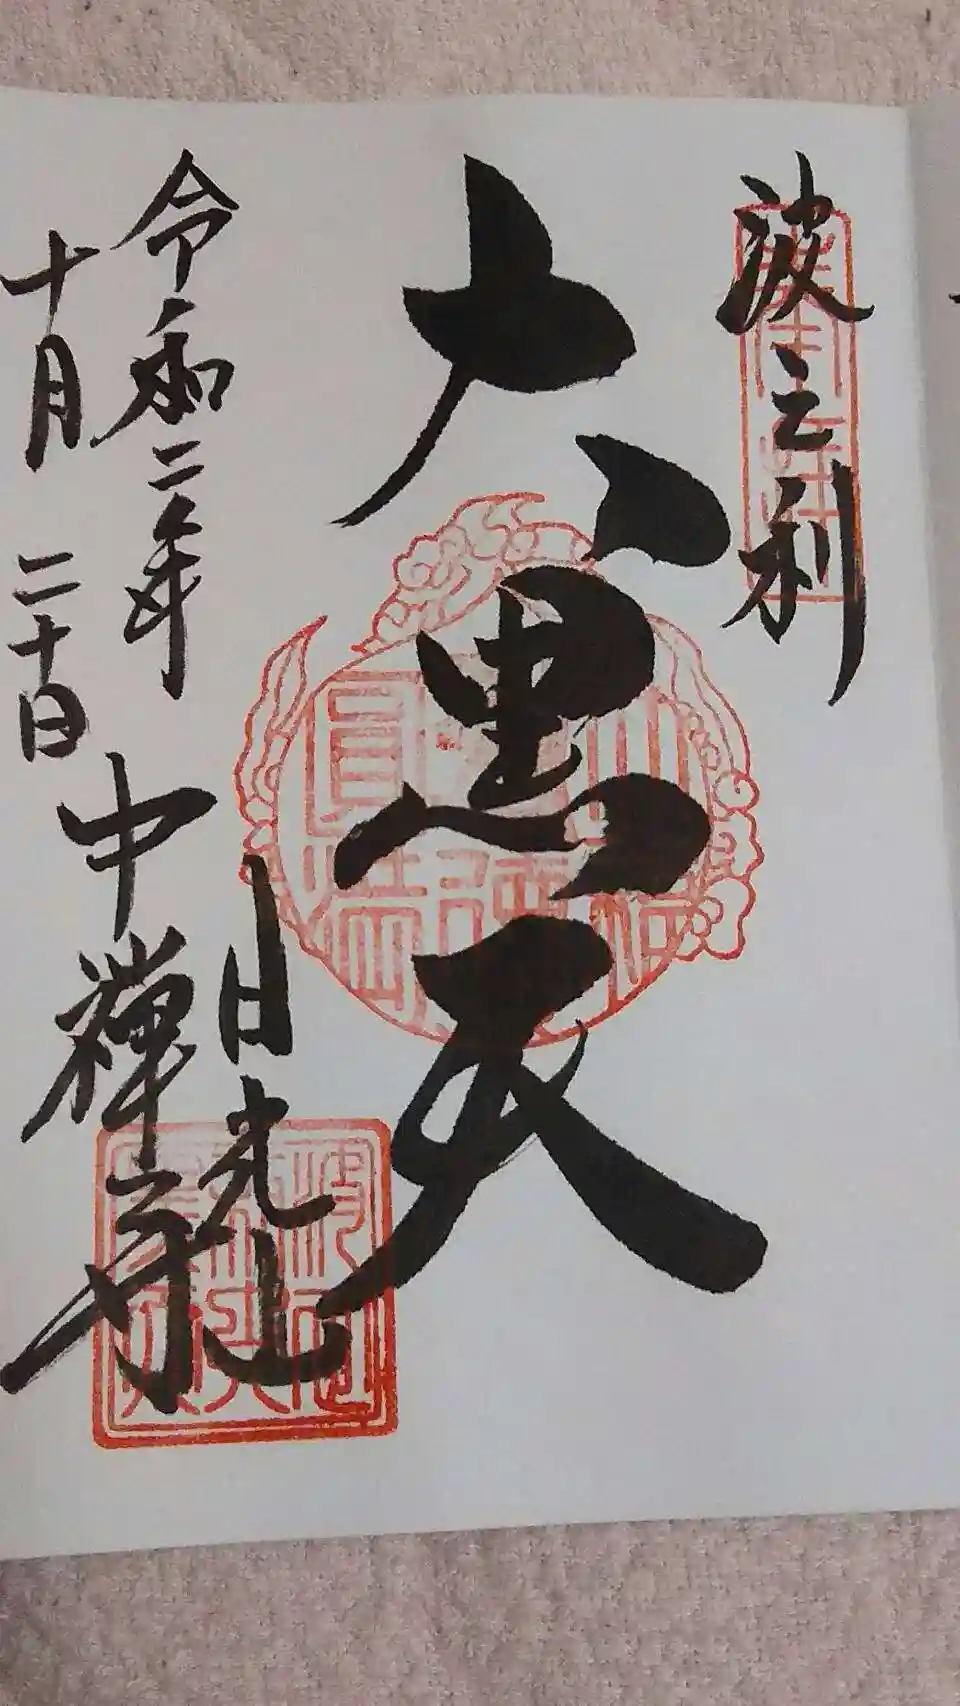 波之利
大黒天
日光山
中禅寺
令和二年
十月二十日